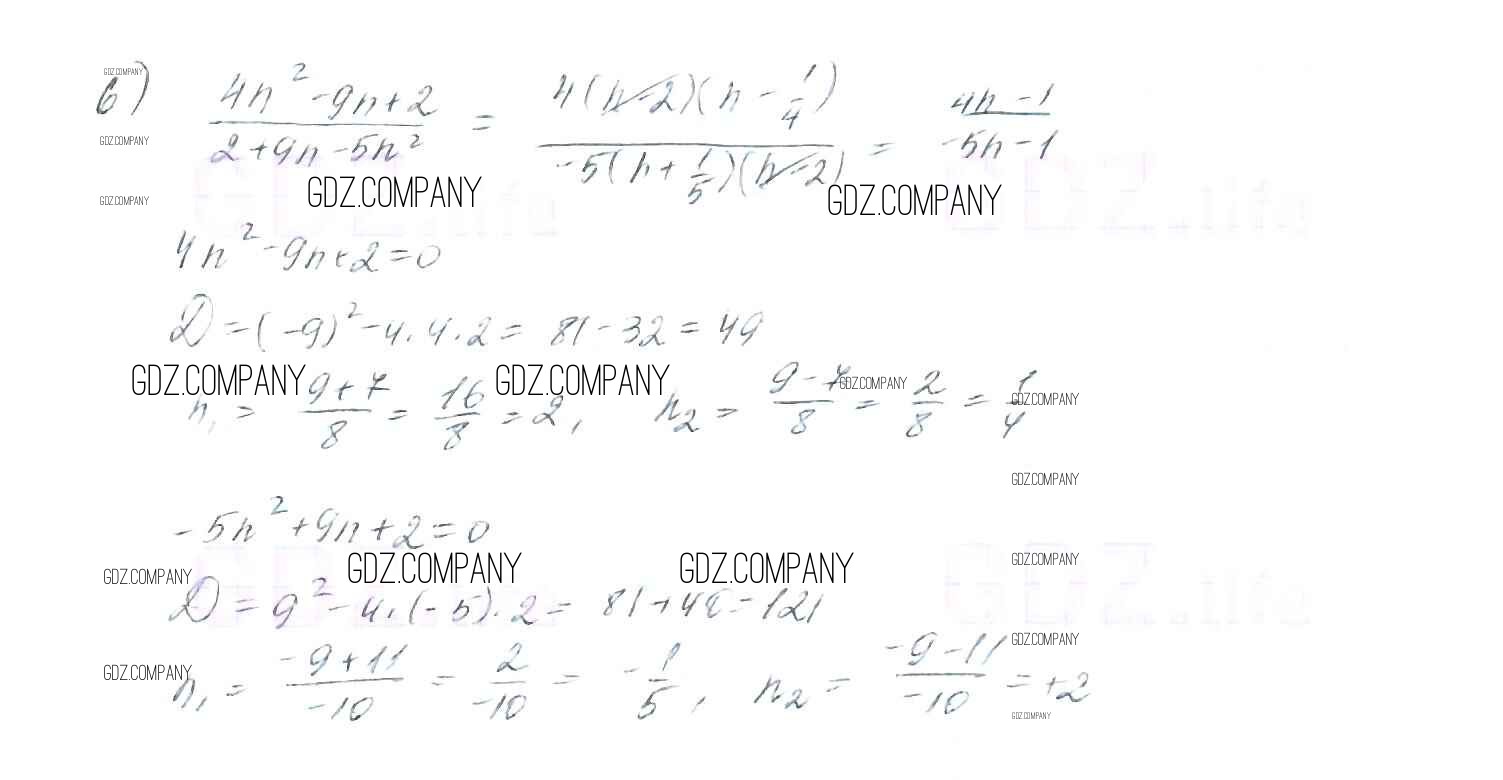 GDZ.COMPANY
б) (4n² - 9n + 2)/(2 + 9n - 5n²) = (4(n - 2)(n - 1/4))/(-5(n + 1/5)(n - 2)) = (4n - 1)/(-5n - 1)
GDZ.COMPANY
GDZ.COMPANY GDZ.COMPANY GDZ.COMPANY
GDZ.life GDZ.life
4n² - 9n + 2 = 0
D = (-9)² - 4 · 4 · 2 = 81 - 32 = 49
GDZ.COMPANY GDZ.COMPANY GDZ.COMPANY GDZ.COMPANY
n₁ = (9 + 7)/8 = 16/8 = 2, n₂ = (9 - 7)/8 = 2/8 = 1/4
GDZ.COMPANY
-5n² + 9n + 2 = 0
GDZ.COMPANY GDZ.COMPANY GDZ.COMPANY GDZ.COMPANY
GDZ.life GDZ.life
D = 9² - 4 · (-5) · 2 = 81 + 40 = 121
GDZ.COMPANY GDZ.COMPANY
n₁ = (-9 + 11)/(-10) = 2/(-10) = -1/5, n₂ = (-9 - 11)/(-10) = +2
GDZ.COMPANY